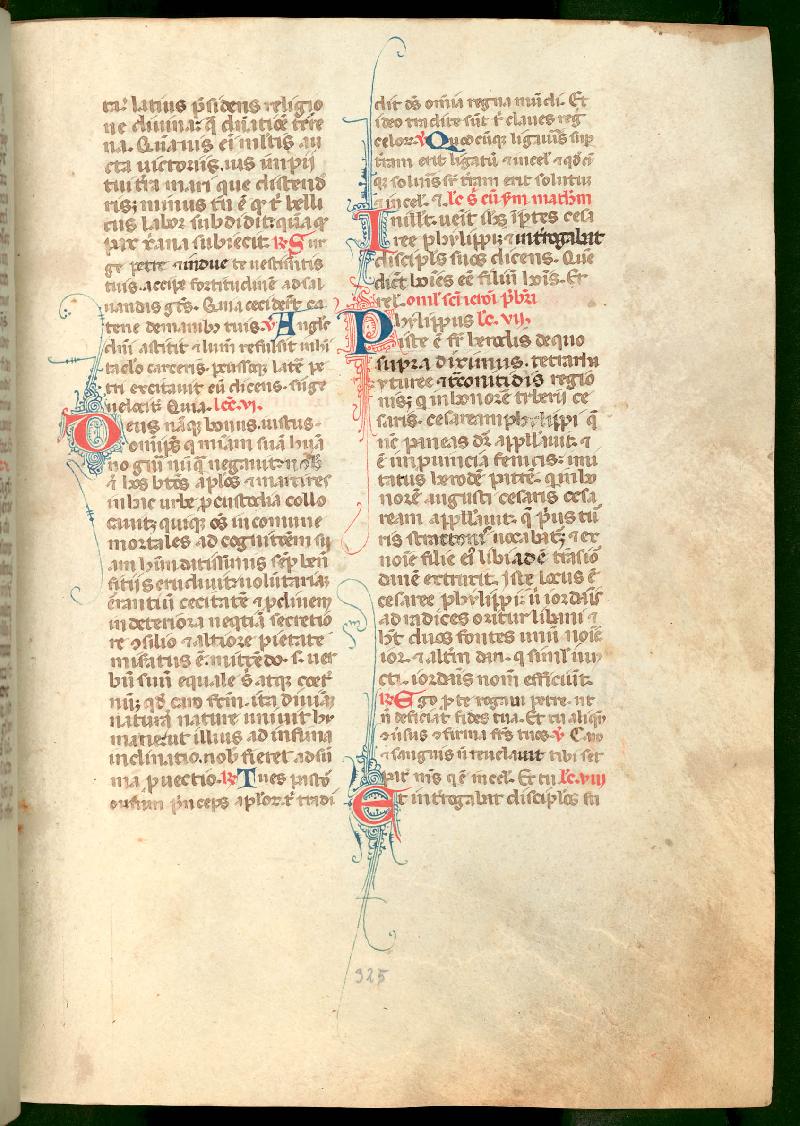 ra: latius p̄sidens religio
ne diuina: q̄ dn̄atiōe terre
na. Quāuis eī m̄ltis au
cta uictoriis. ius imp̄ii
tui t̄ra mari que distend
ris; minus tn̄ ē qᵈ t̄ belli
cus labor subdidit: quā qᵈ
pax x̄iana subiecit. R̄ Sur
ge petre ⁊ indue te uestim̄tis
tuis. accipe fortitudinē ad sal
uandis gēs. Quia cecider̄t ca
tene de manibꝫ tuis. V̄ Angls̄
dn̄i astitit ⁊ lum̄ refulsit in hi
taclo carceris. p̄cussoqꝫ lat̄e pe
tri excitauit eū dicens. surge
uelociter. Quia. lc̄c. vi.
Deus nāqꝫ bonus. iustus.
om̄ips̄ q mīam suā hūa
no gn̄i nūq̄ negauit. nobᷤ
ꝑ hos btōs apl̄os ⁊ martires
in hac urbe ꝓ custodia collo
cauit; quiqꝫ oēs in comune
mortales ad cognit̄em su
am hūndatissimis semp̄ ben̄
ficiis erudiuit: uoluntariā
errantiū cecitatē ⁊ ꝓcliuem
in deteriora neq̄tiā secretio
re ꝯsilio ⁊ altiore pietate
mis̄atus ē. mittēdo. s. uer
bū suū equale s̄ atqꝫ coet̄
nū; qd̄ caro fcm̄. ita diuinā
naturā nature uniuit hu
mane: ut illius ad infima
inclinatio. nob̄ fieret ad sū
ma ꝓuectio. R̄ Tu es pastor
ouium p̄nceps apl̄or. t̄ tradi
dit ds̄ om̄ia regna mūdi. Et
ideo tradite sūt t̄ claues reg
celor. V̄ Quodcūqꝫ ligau̅is sup
terram erit ligatū ⁊ in cel. ⁊ qd̄cū
qꝫ solu̅is sr̄ t̄ram erit solutū
⁊ in cel. ⁊. lc̄ s̄ eū s̄m mathm̄
In illt̄. ueīt ih̄s ī p̄tes cesa
ree phylippi: ⁊ int̄rogabat
discipl̄s suos dicens. Quē
dicūt hoīes eē filiū hoīs. Et
rel̄. om̄l sci ieroī p̄bri
Phylippus lc̄. vii.
iste ē fr̄ herodis de quo
supra diximus. tetrarha
yturee ⁊ tᵃconitidis regio
nis; q in honorē tyberii ce
saris. cesaream phylippi q̄
nc̄ paneas dr̄ appll̄auit: ⁊
ē in ꝓuincia fenicis: imi
tatus herodē patrē. qui ī ho
norē augusti cesaris cesa
ream appll̄auit. q̄ p̄us tur
ris stratonis uocabat̄; ⁊ ex
noīe filie ei⁹ libiadē trās io
danē extruxit. Iste locus ē
cesaree phylippi: ū iordāīs
ad radices oritur libani ⁊
h̄t duos fontes unū noīe
ior. ⁊ altm̄ dan. q simil̄ iun
cti. iordanīs nom̄ efficiūt.
R̄ Ego ꝓ te rogaui petre. ut
n̄ deficiat fides tua. Et tu aliqn̄
ꝯu̅sus ꝯfirma frs̄ tuos. V̄ Caro
⁊ sanguis n̄ reuelauit tibi set
pat̄ ms̄ qi ē in cel. Et tu. lc̄. viii
Et int̄rogabat discipl̄os su
325